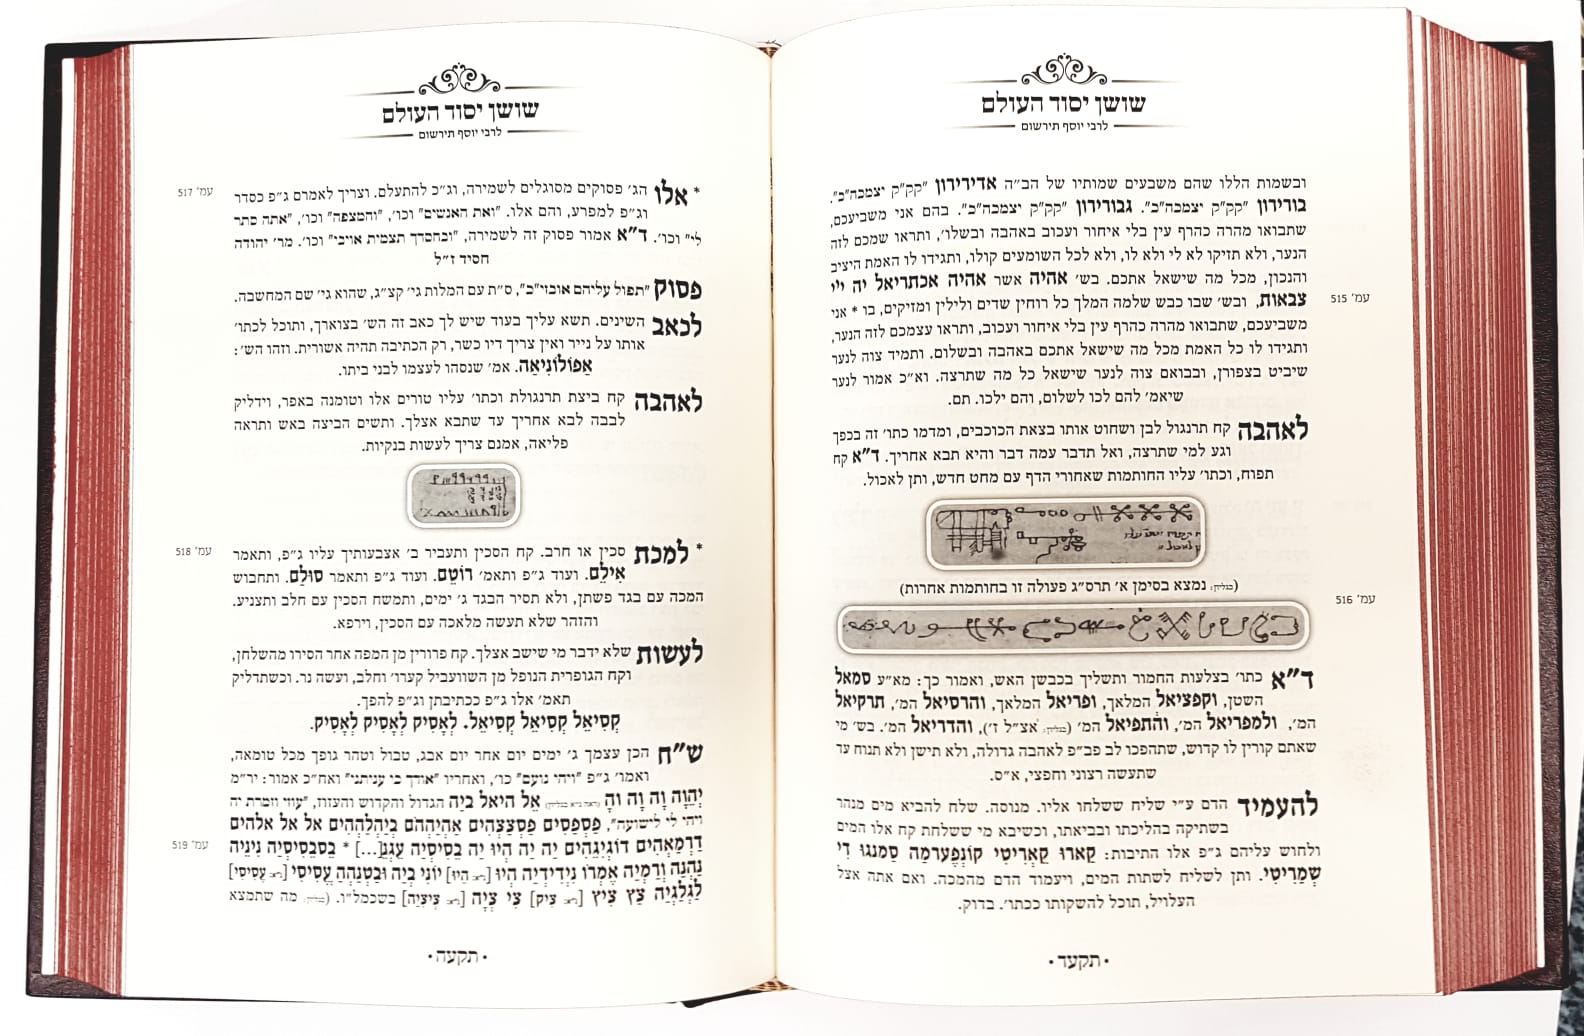 שושן יסוד העולם
לרבי יוסף תירשום
ובשמות הללו שהם משבעים שמותיו של הב״ה אדירירון "קק״ק יצמכה״כ".
בורירון "קק״ק יצמכה״כ". גבורירון "קק״ק יצמכה״כ". בהם אני משביעכם,
שתבואו מהרה כהרף עין בלי איחור ועכוב באהבה ובשלו׳, ותראו שמכם לזה
הנער, ולא תזיקו לא לי ולא לו, ולא לכל השומעים קולו, ותגידו לו האמת היציב
והנכון, מכל מה שישאל אתכם. בש׳ אהיה אשר אהיה אכתריאל יה י״י
צבאות, ובש׳ שבו כבש שלמה המלך כל רוחין שדים ולילין ומזיקים, בו * אני
עמ׳ 515
משביעכם, שתבואו מהרה כהרף עין בלי איחור ועכוב, ותראו עצמכם לזה הנער,
ותגידו לו כל האמת מכל מה שישאל אתכם באהבה ובשלום. ותמיד צוה לנער
שיביט בצפורן, ובבואם צוה לנער שישאל כל מה שתרצה. וא״כ אמור לנער
שיאמ׳ להם לכו לשלום, והם ילכו. תם.
לאהבה קח תרנגול לבן ושחוט אותו בצאת הכוכבים, ומדמו כתו׳ זה בכפך
וגע למי שתרצה, ואל תדבר עמה דבר והיא תבא אחריך. ד״א קח
תפוח, וכתו׳ עליו החותמות שאחורי הדף עם מחט חדש, ותן לאכול.
(בגליון: נמצא בסימן א׳ תרס״ג פעולה זו בחותמות אחרות)
עמ׳ 516
ד״א כתו׳ בצלעות החמור ותשליך בכבשן האש, ואמור כך: מא״ע סמאל
השטן, וקפציאל המלאך, ופריאל המלאך, והרסיאל המ׳, תרקיאל
המ׳, ולמפריאל המ׳, והתפיאל המ׳ (בגליון: אצ״ל ז׳), והדריאל המ׳. בש׳ מי
שאתם קורין לו קדוש, שתהפכו לב פב״פ לאהבה גדולה, ולא תישן ולא תנוח עד
שתעשה רצוני וחפצי, א״ס.
להעמיד הדם ע״י שליח ששלחו אליו. מנוסה. שלח להביא מים מנהר
בשתיקה בהליכתו ובביאתו, וכשיבא מי ששלחת קח אלו המים
ולחוש עליהם ג״פ אלו התיבות: קארו קאריטי קונפערמה סמנגו די
שמריטי. ותן לשליח לשתות המים, ויעמוד הדם מהמכה. ואם אתה אצל
העלויל, תוכל להשקותו ככתו׳. בדוק.
• תקעד •
שושן יסוד העולם
לרבי יוסף תירשום
* אלו הג׳ פסוקים מסוגלים לשמירה, וג״כ להתעלם. וצריך לאמרם ג״פ כסדר
עמ׳ 517
וג״פ למפרע, והם אלו. "ואת האנשים" וכו׳, "והמצפה" וכו׳, "אתה סתר
לי" וכו׳. ד״א אמור פסוק זה לשמירה, "ובחסדך תצמית אויבי" וכו׳. מר׳ יהודה
חסיד ז״ל
פסוק "תפול עליהם אוכזי״כ", ס״ת עם המלות גי׳ קצ״ג, שהוא גי׳ שם המחשבה.
לכאב השינים. תשא עליך בעוד שיש לך כאב זה הש׳ בצוארך, ותוכל לכתו׳
אותו על נייר ואין צריך דיו כשר, רק הכתיבה תהיה אשורית. וזהו הש׳:
אפולוניאה. אמ׳ שנסהו לעצמו לבני ביתו.
לאהבה קח ביצת תרנגולת וכתו׳ עליו טורים אלו וטומנה באפר, וידליק
לבבה לבא אחריך עד שתבא אצלך. ותשים הביצה באש ותראה
פליאה, אמנם צריך לעשות בנקיות.
* למכת סכין או חרב. קח הסכין ותעביר ב׳ אצבעותיך עליו ג״פ, ותאמר
עמ׳ 518
אילם. ועוד ג״פ ותאמ׳ רוטם. ועוד ג״פ ותאמר סולם. ותחבוש
המכה עם בגד פשתן, ולא תסיר הבגד ג׳ ימים, ותמשח הסכין עם חלב ותצניע.
והזהר שלא תעשה מלאכה עם הסכין, וירפא.
לעשות שלא ידבר מי שישב אצלך. קח פרורין מן המפה אחר הסירו מהשלחן,
וקח הגופרית הנופל מן השוועביל קערו׳ וחלב, ועשה נר. וכשתדליק
תאמ׳ אלו ג״פ ככתיבתן וג״פ להפך.
קסיאל קסיאל קסיאל. לאסיק לאסיק לאסיק.
ש״ח הכן עצמך ג׳ ימים יום אחר יום אבג, טבול וטהר גופך מכל טומאה,
ואמו׳ ג״פ "ויהי נועם" כו׳, ואחריו "אודך כי עניתני" ואח״כ אמור: יר״מ
יהוה וה וה וה אל היאל ביה הגדול והקדוש והעזוז, "עוזי וזמרת יה
ויהי לי לישועה", פספסים פסצצהים אהיההם ביהלההים אל אל אלהים
דרמאהים דוגיגהים יה יה היו יה בסיסיה עגנ[...] * בסבסיסיה ניניה
עמ׳ 519
נהנה ורמיה אמרו נידידיה היו [נ״א: היו] יוני ביה ובטנהה עסיסי [נ״א: עסיסי]
לגלגיה צץ ציץ [נ״א: ציק] צי ציה [נ״א: ציציה] בשכמל״ו. (בגליון: מה שתמצא
• תקעה •